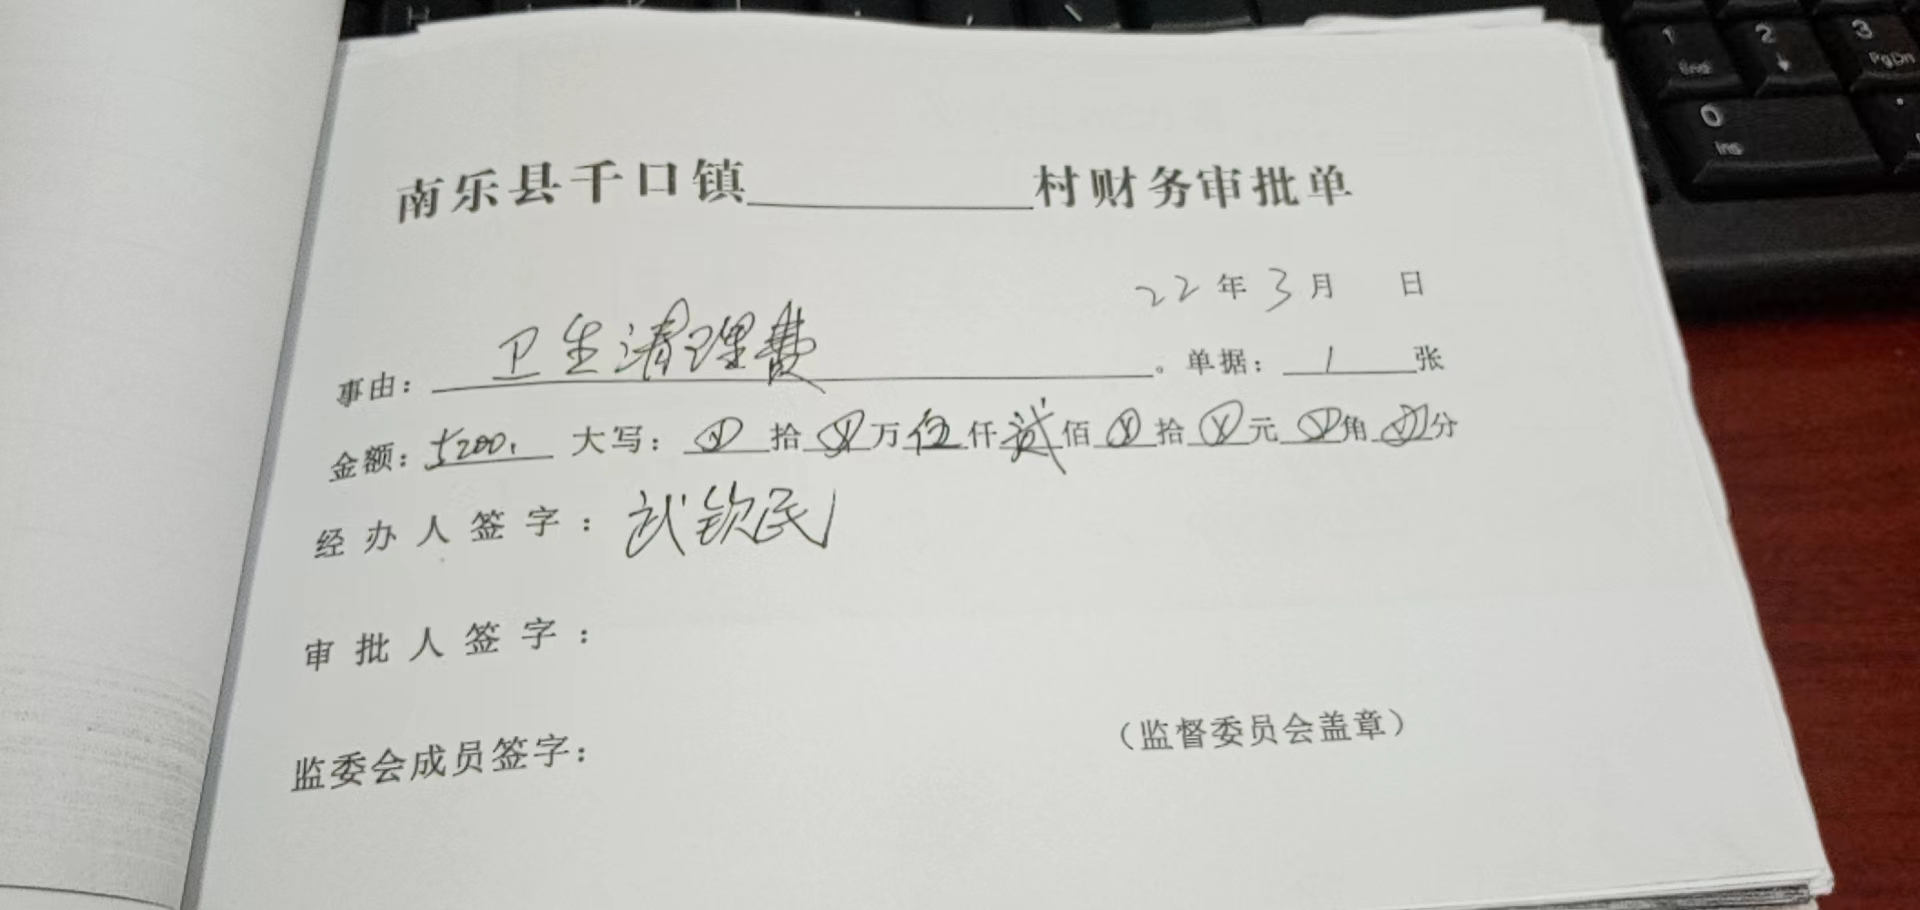 南乐县千口镇__________村财务审批单
22年3月 日
事由：卫生清理费。单据：1张
金额：5200. 大写：ⓧ拾ⓧ万伍仟贰佰ⓧ拾ⓧ元ⓧ角ⓧ分
经办人签字：武钦民
审批人签字：
监委会成员签字：
（监督委员会盖章）
1 End
2 ↓
3 PgDn
0 Ins